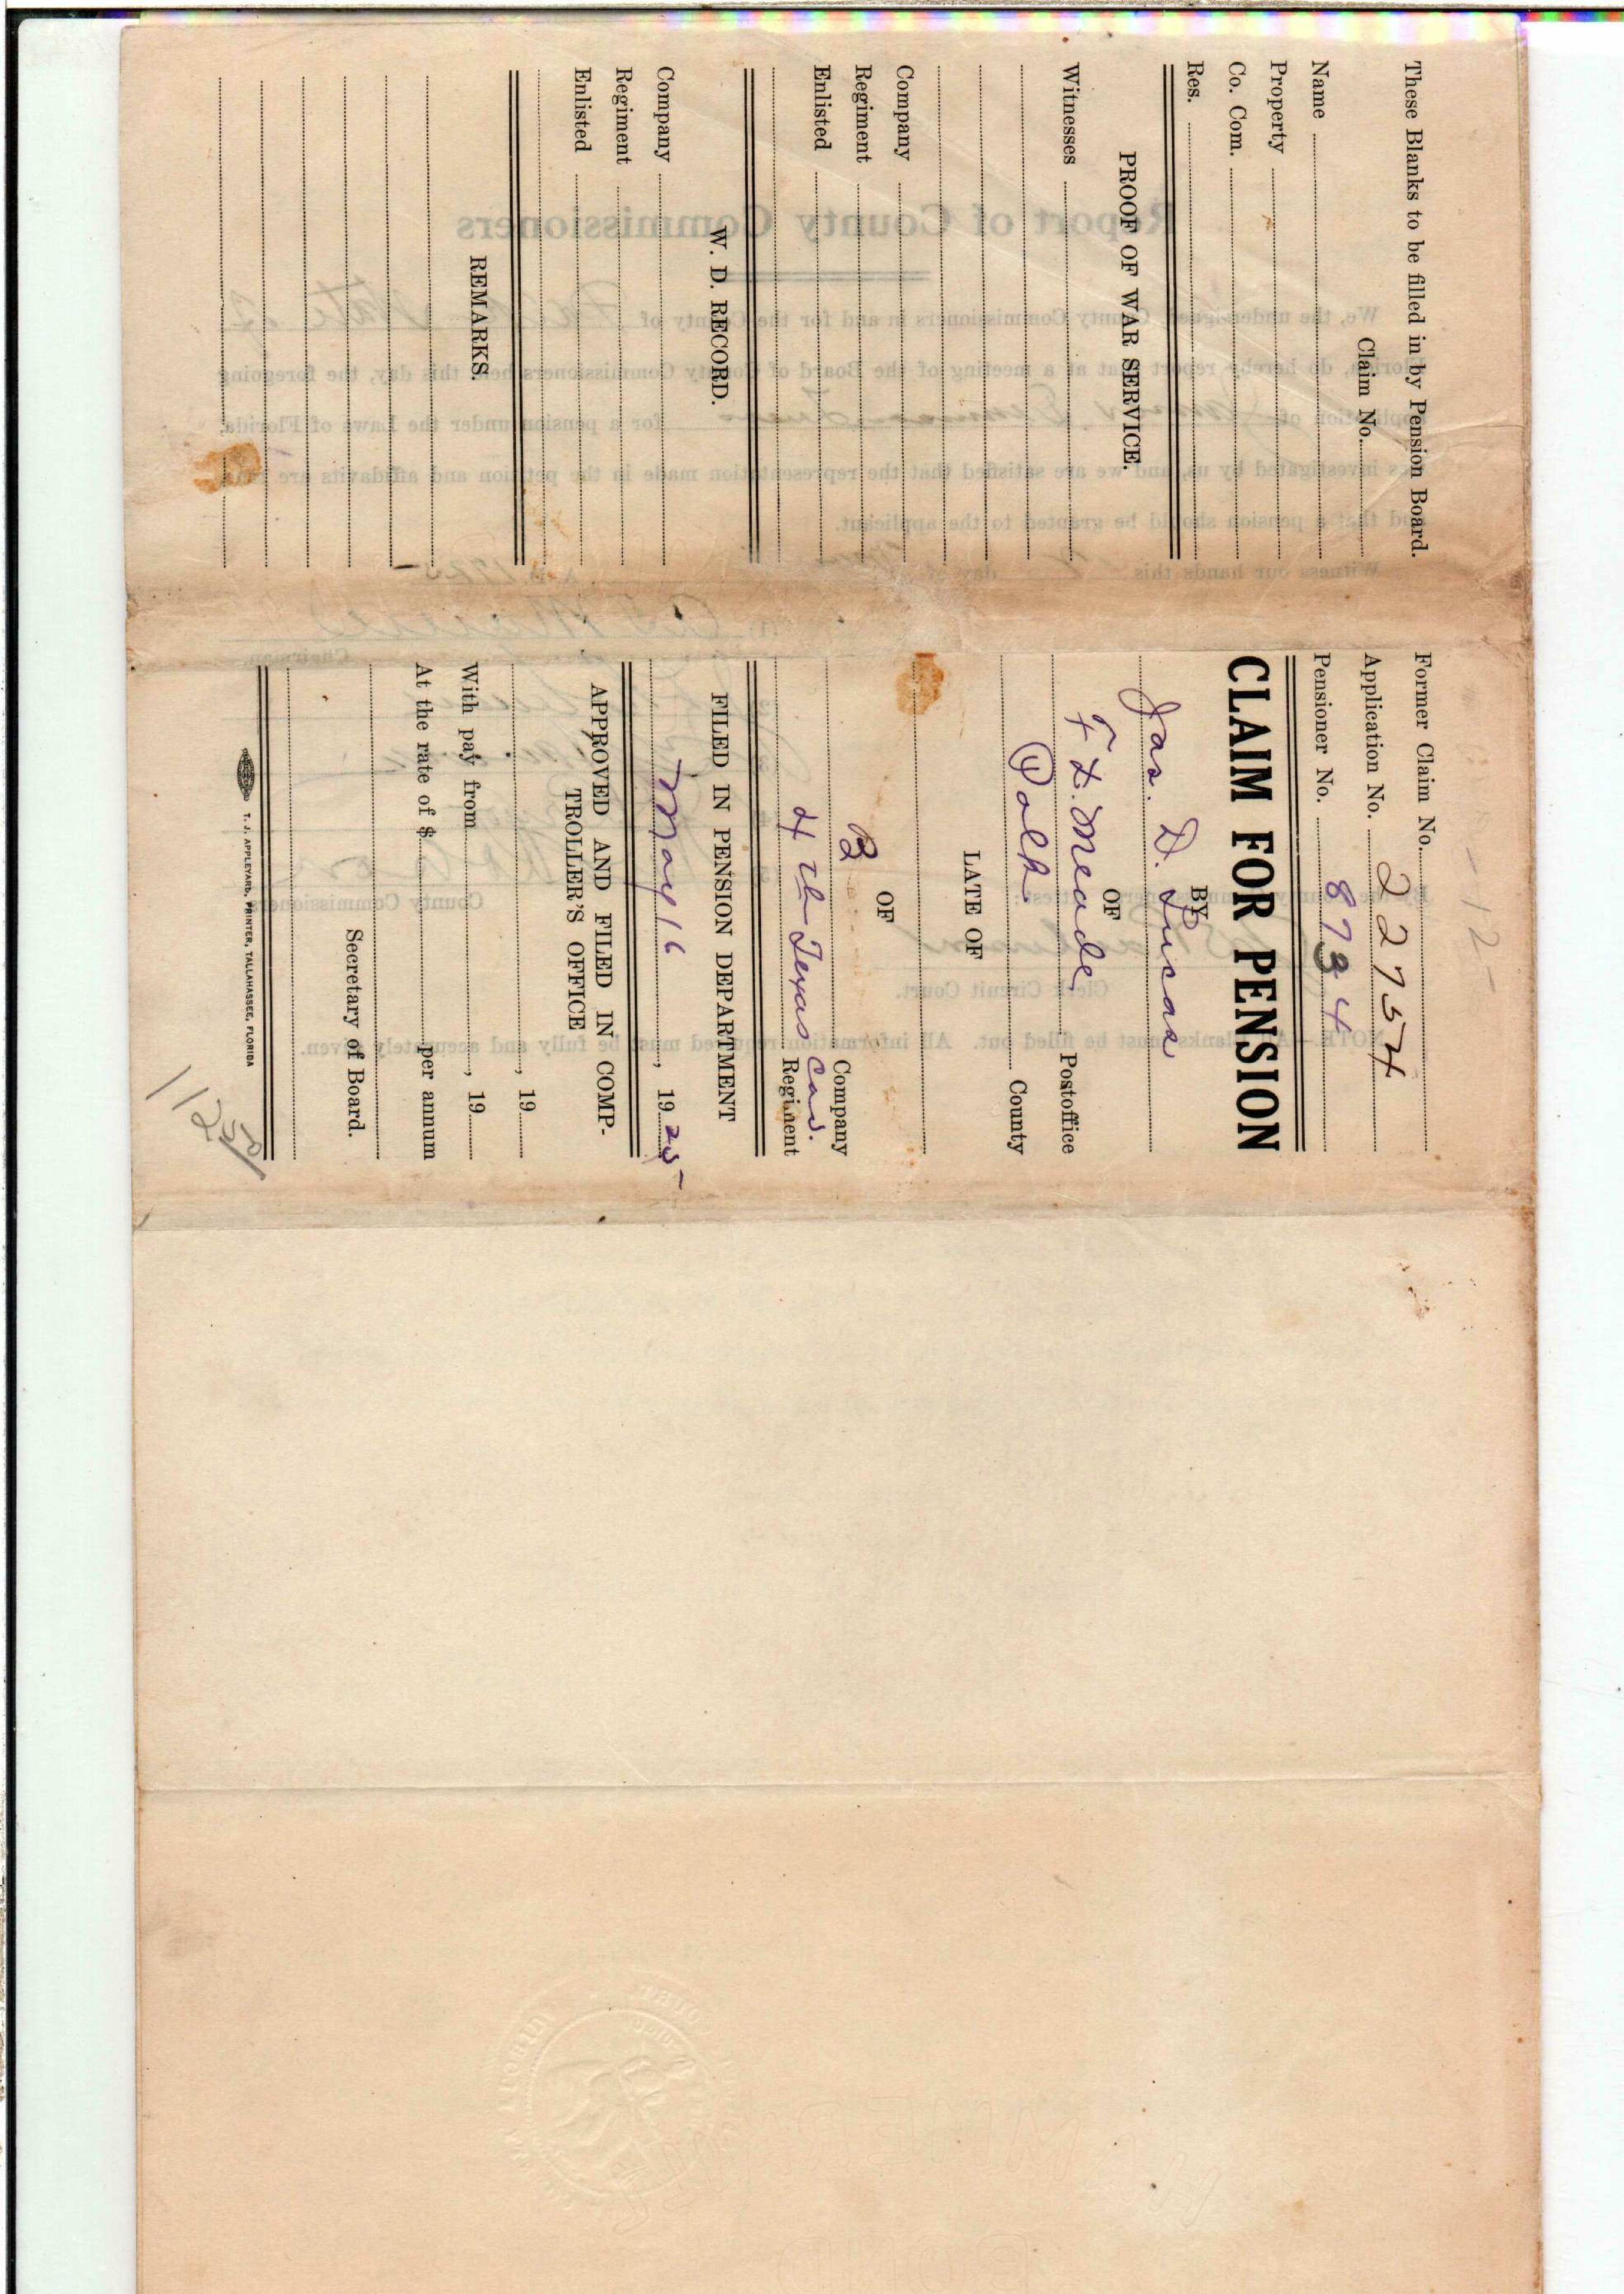 These Blanks to be filled in by Pension Board.
Claim No.
Name
Property
Co. Com.
Res.
PROOF OF WAR SERVICE.
Witnesses
Company
Regiment
Enlisted
W. D. RECORD.
Company
Regiment
Enlisted
REMARKS.
12
Former Claim No.
Application No. 22754
Pensioner No. 8734
CLAIM FOR PENSION
BY
Jas. D. Lucas
OF
Ft. Meade, Postoffice
Polk County
LATE OF
OF
B Company
4th Texas Cav. Regiment
FILED IN PENSION DEPARTMENT
May 16, 1925
APPROVED AND FILED IN COMP-
TROLLER'S OFFICE
, 19
With pay from , 19
At the rate of $ per annum
Secretary of Board.
T. J. APPLEYARD, PRINTER, TALLAHASSEE, FLORIDA
Report of County Commissioners
We, the undersigned, County Commissioners in and for the County of
Florida, do hereby report that at a meeting of the Board of County Commissioners held this day, the foregoing
application of James for a pension under the Laws of Florida,
was investigated by us, and we are satisfied that the representation made in the petition and affidavits are true
and that a pension should be granted to the applicant.
Witness our hands this day of 1925
Chairman
County Commissioners
Clerk Circuit Court.
NOTE.—All blanks must be filled out. All information required must be fully and accurately given.